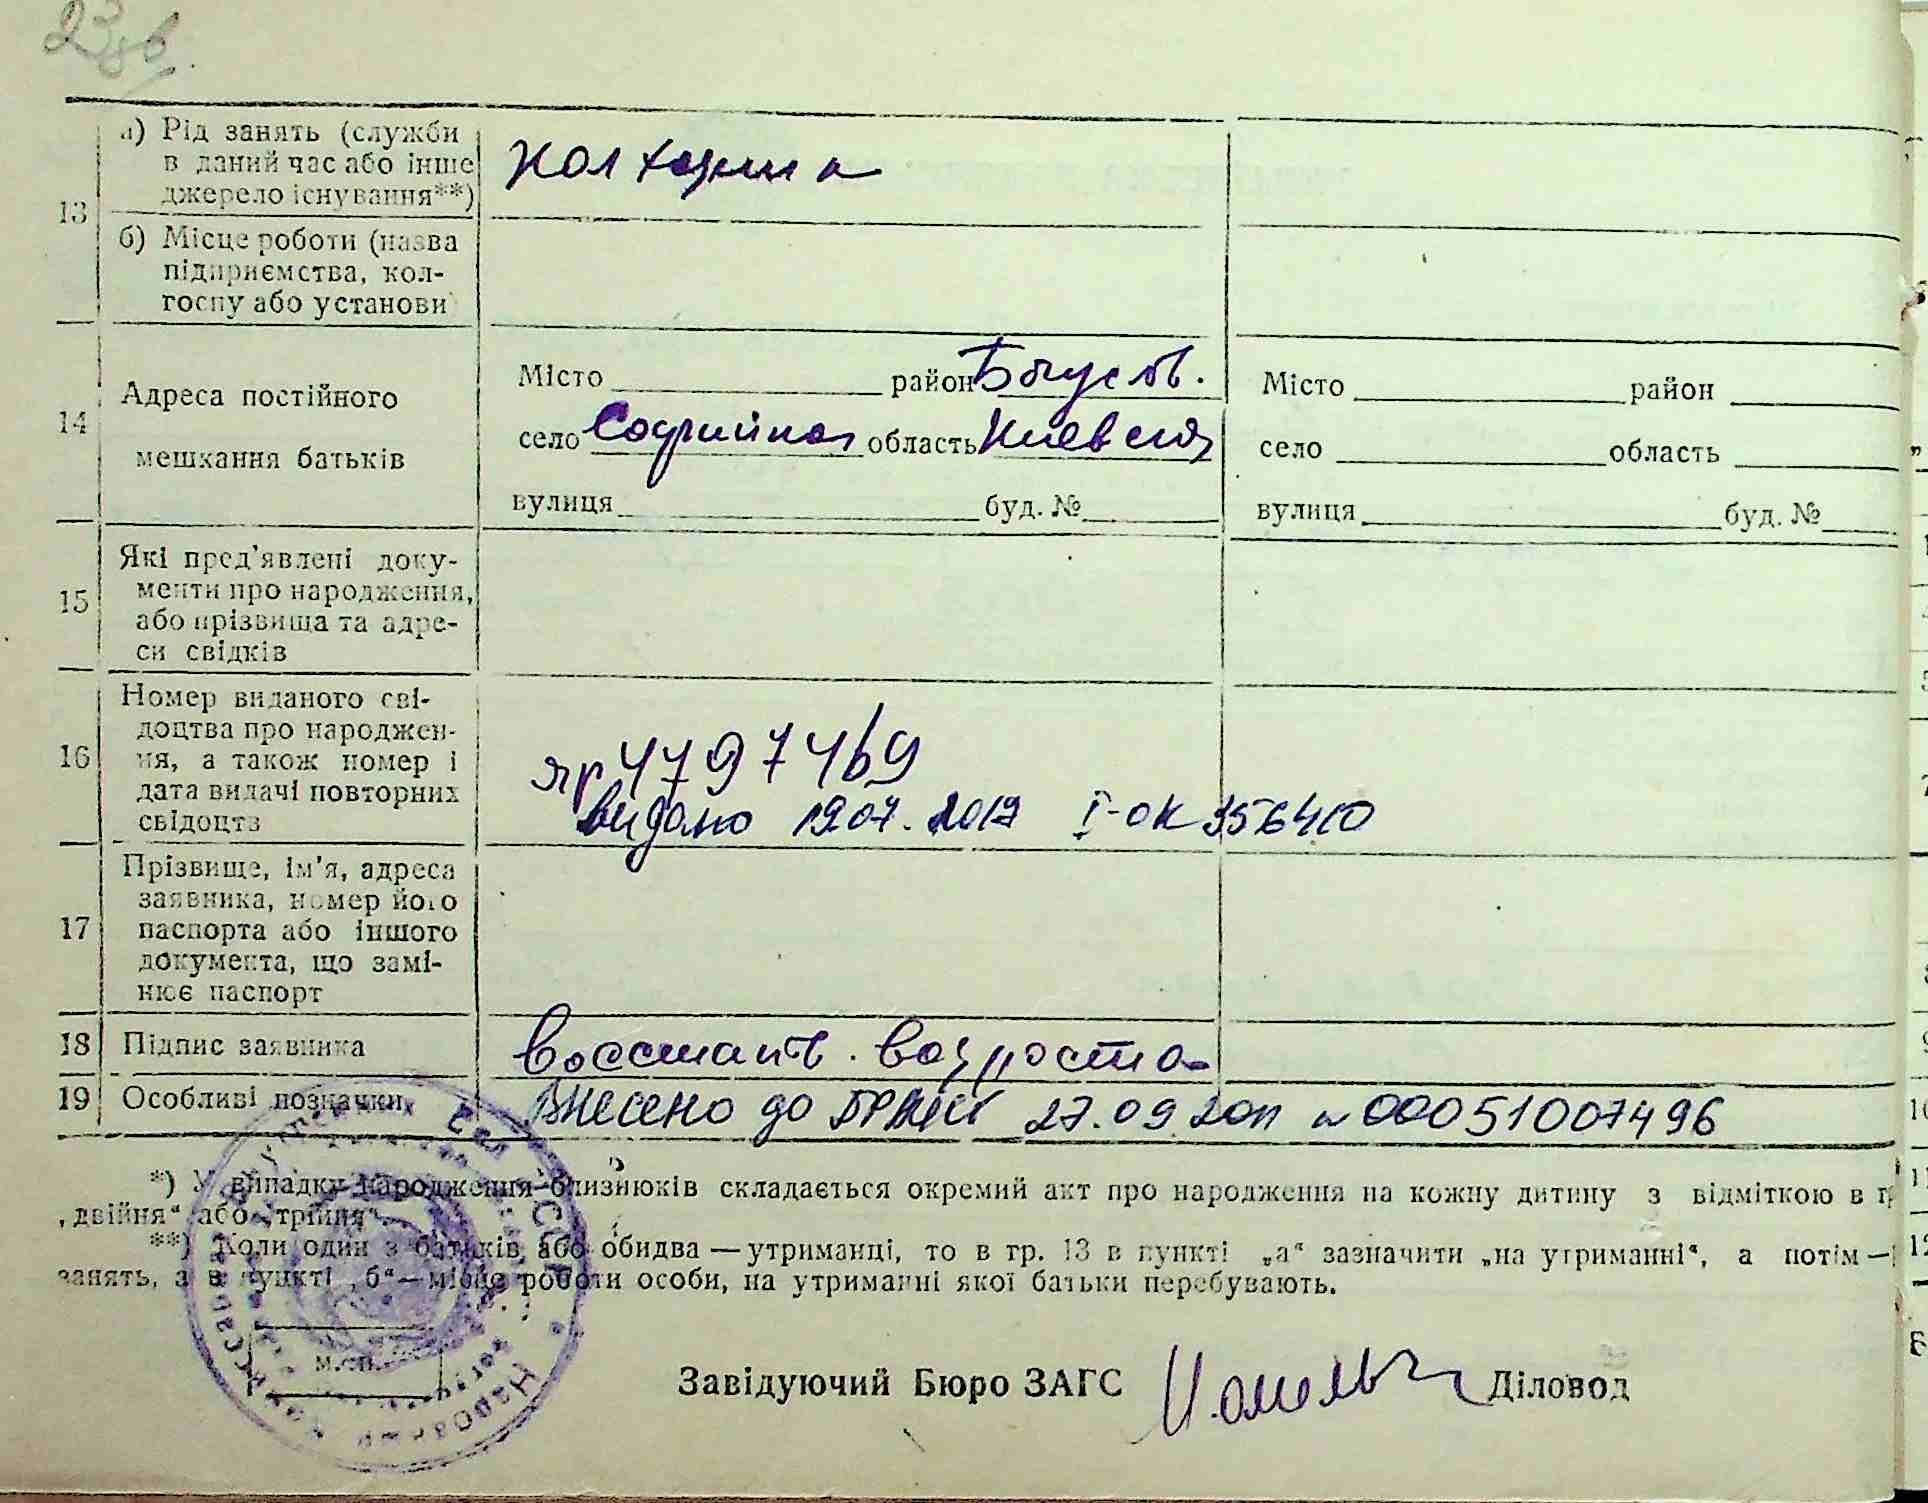 23 зв.
13
а) Рід занять (служби
в даний час або інше
джерело існування**)
колхозник
б) Місце роботи (назва
підприємства, кол-
госпу або установи)
14
Адреса постійного
мешкання батьків
Місто район Богуслав. Місто район
село область Киевская село область
вулиця буд. № вулиця буд. №
15
Які пред'явлені доку-
менти про народження,
або прізвища та адре-
си свідків
16
Номер виданого сві-
доцтва про народжен-
ня, а також номер і
дата видачі повторних
свідоцтв
4797469
видано 19.07.2017 I-ОК 356410
17
Прізвище, ім'я, адреса
заявника, номер його
паспорта або іншого
документа, що замі-
нює паспорт
18 Підпис заявника
возраста
19 Особливі позначки
Внесено до 27.09.2011 № 00051007496
*) У випадку народження близнюків складається окремий акт про народження на кожну дитину з відміткою в
„двійня“ або „трійня“.
**) Коли один з батьків або обидва — утриманці, то в гр. 13 в пункті „а“ зазначити „на утриманні“, а потім —
занять, а в пункті „б“ — місце роботи особи, на утриманні якої батьки перебувають.
м. п.
Завідуючий Бюро ЗАГС Діловод